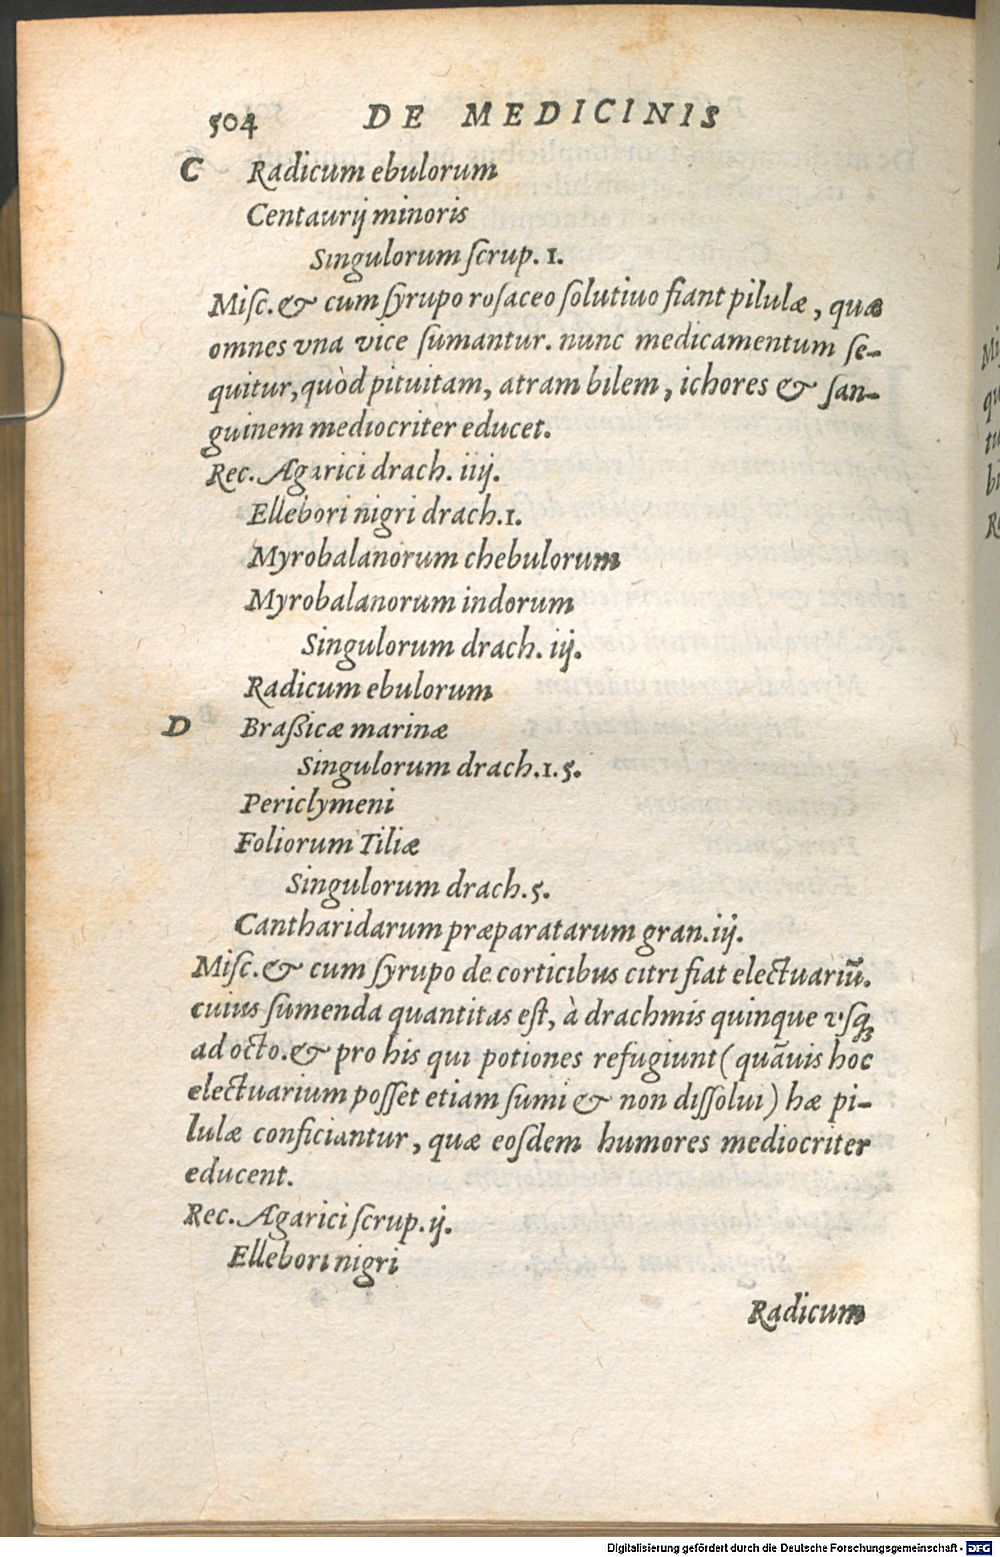 504 DE MEDICINIS
C Radicum ebulorum
Centaurij minoris
Singulorum ſcrup. 1.
Miſc. & cum ſyrupo roſaceo ſolutiuo fiant pilulæ, quæ
omnes vna vice ſumantur. nunc medicamentum ſe-
quitur, quòd pituitam, atram bilem, ichores & ſan-
guinem mediocriter educet.
Rec. Agarici drach. iiij.
Ellebori nigri drach. 1.
Myrobalanorum chebulorum
Myrobalanorum indorum
Singulorum drach. iij.
Radicum ebulorum
D Braßicæ marinæ
Singulorum drach. 1. 5.
Periclymeni
Foliorum Tiliæ
Singulorum drach. 5.
Cantharidarum præparatarum gran. iij.
Miſc. & cum ſyrupo de corticibus citri fiat electuariū.
cuius ſumenda quantitas eſt, à drachmis quinque vſq;
ad octo. & pro his qui potiones refugiunt (quāuis hoc
electuarium poſſet etiam ſumi & non diſſolui) hæ pi-
lulæ conficiantur, quæ eoſdem humores mediocriter
educent.
Rec. Agarici ſcrup. ij.
Ellebori nigri
Radicum
Digitalisierung gefördert durch die Deutsche Forschungsgemeinschaft - DFG